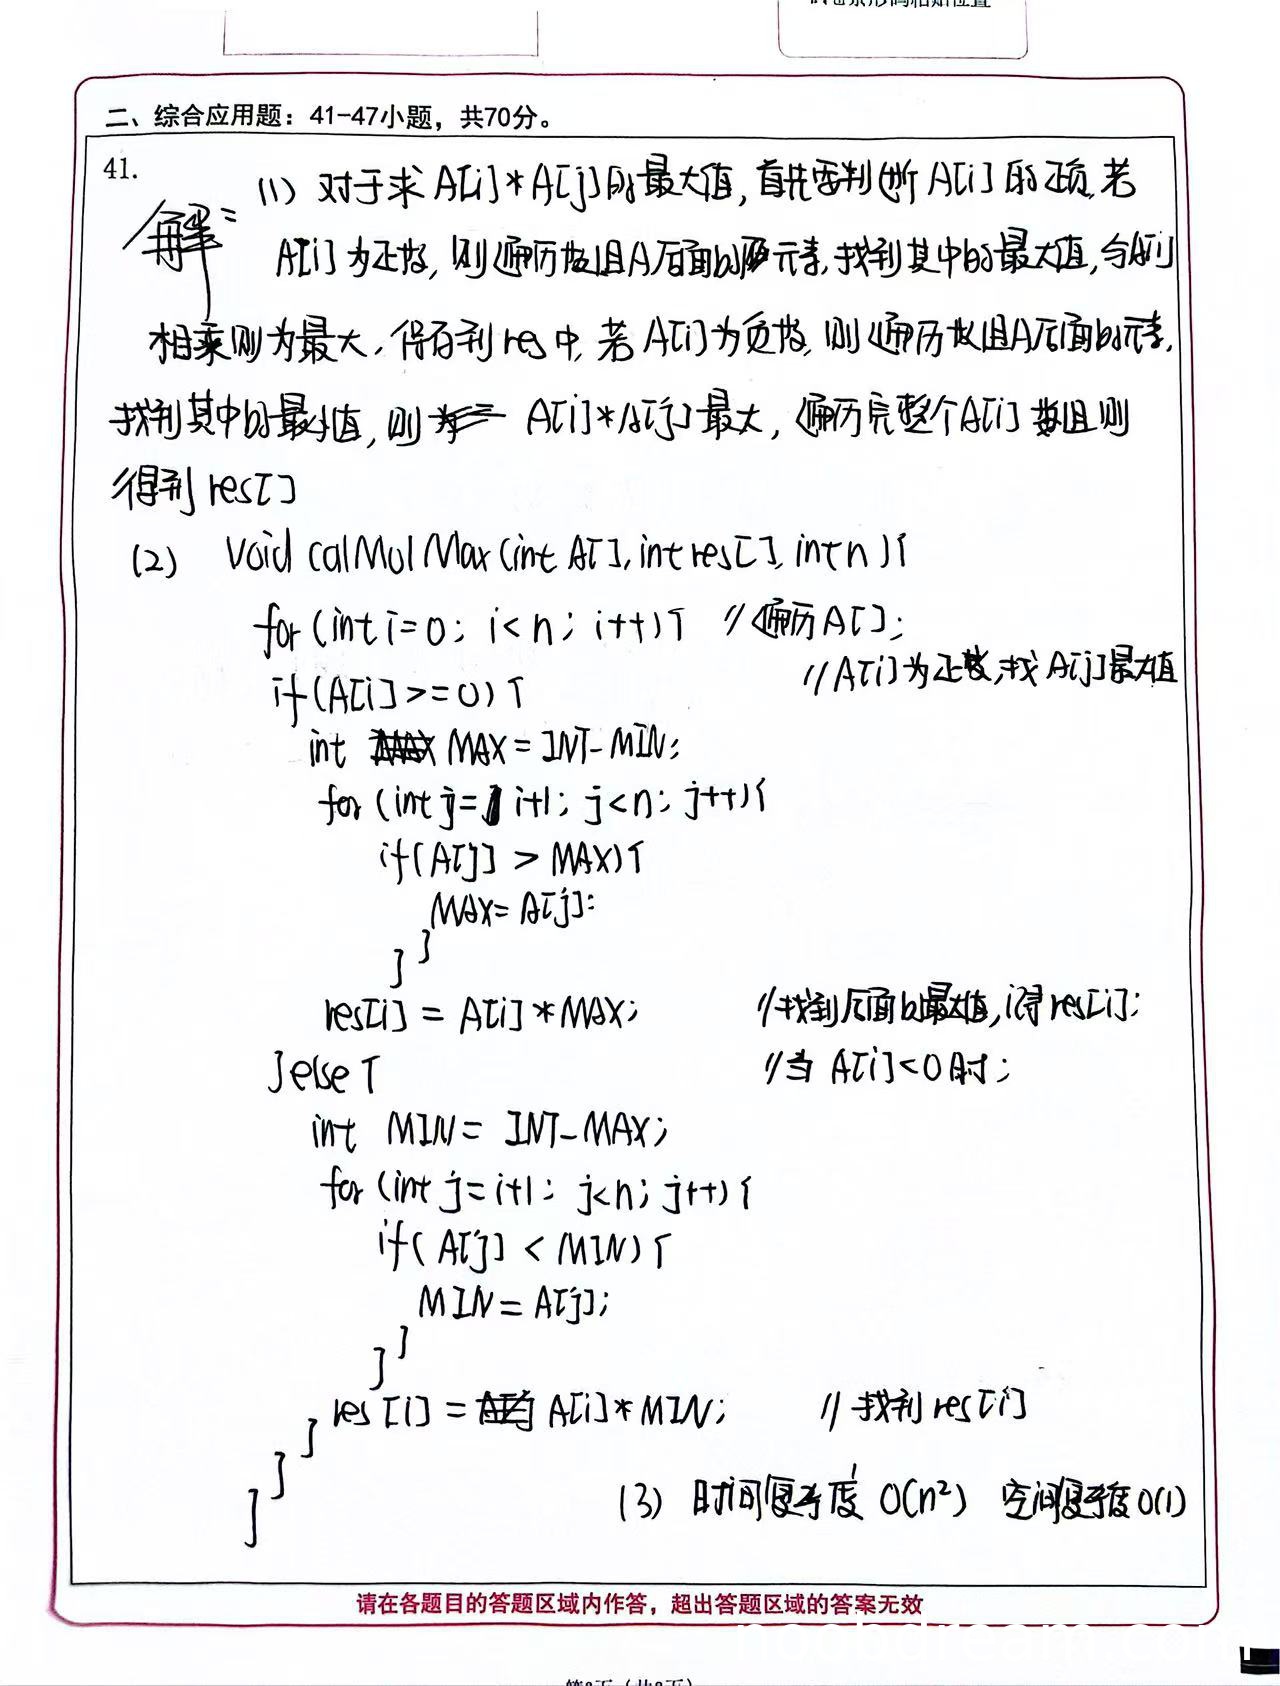 二、综合应用题：41-47小题，共70分。
41.
解：
(1) 对于求 A[i]*A[j]的最大值，首先要判断 A[i] 的正负，若
A[i] 为正数，则遍历数组A后面的元素，找到其中的最大值，与A[i]
相乘则为最大，保存到res中，若A[i]为负数，则遍历数组A后面的元素，
找到其中的最小值，则 A[i]*A[j]最大，遍历完整个A[i]数组则
得到 res[]
(2) void calMulMax(int A[], int res[], int n){
for (int i=0; i<n; i++){ //遍历A[];
//A[i]为正数，找A[j]最大值
if(A[i]>=0){
int MAX = INT_MIN;
for (int j= i+1; j<n; j++){
if(A[j] > MAX){
MAX= A[j];
}
}
res[i] = A[i]*MAX; //找到后面的最大值，得res[i];
}else{ //当 A[i]<0时;
int MIN = INT_MAX;
for (int j=i+1; j<n; j++){
if( A[j] < MIN){
MIN = A[j];
}
}
res[i] = A[i]*MIN; //找到 res[i]
}
}
}
(3) 时间复杂度 O(n²) 空间复杂度O(1)
请在各题目的答题区域内作答，超出答题区域的答案无效